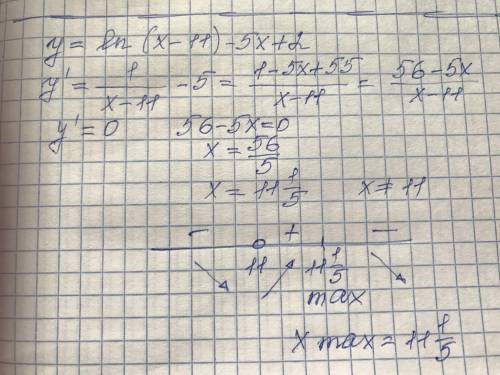 y = ln (x-11) -5x+2
y' = 1/(x-11) -5 = (1-5x+55)/(x-11) = (56-5x)/(x-11)
y' = 0 56-5x=0
x = 56/5
x = 11 1/5 x ≠ 11
- + -
11 11 1/5
max
x max = 11 1/5